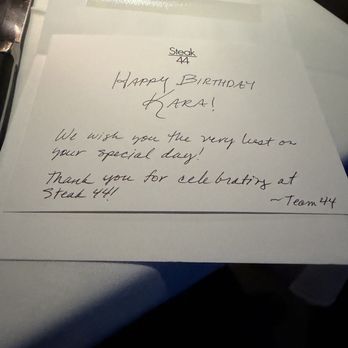 Steak
44
HAPPY BIRTHDAY
KARA!
We wish you the very best on
your special day!
Thank you for celebrating at
Steak 44!
~Team 44